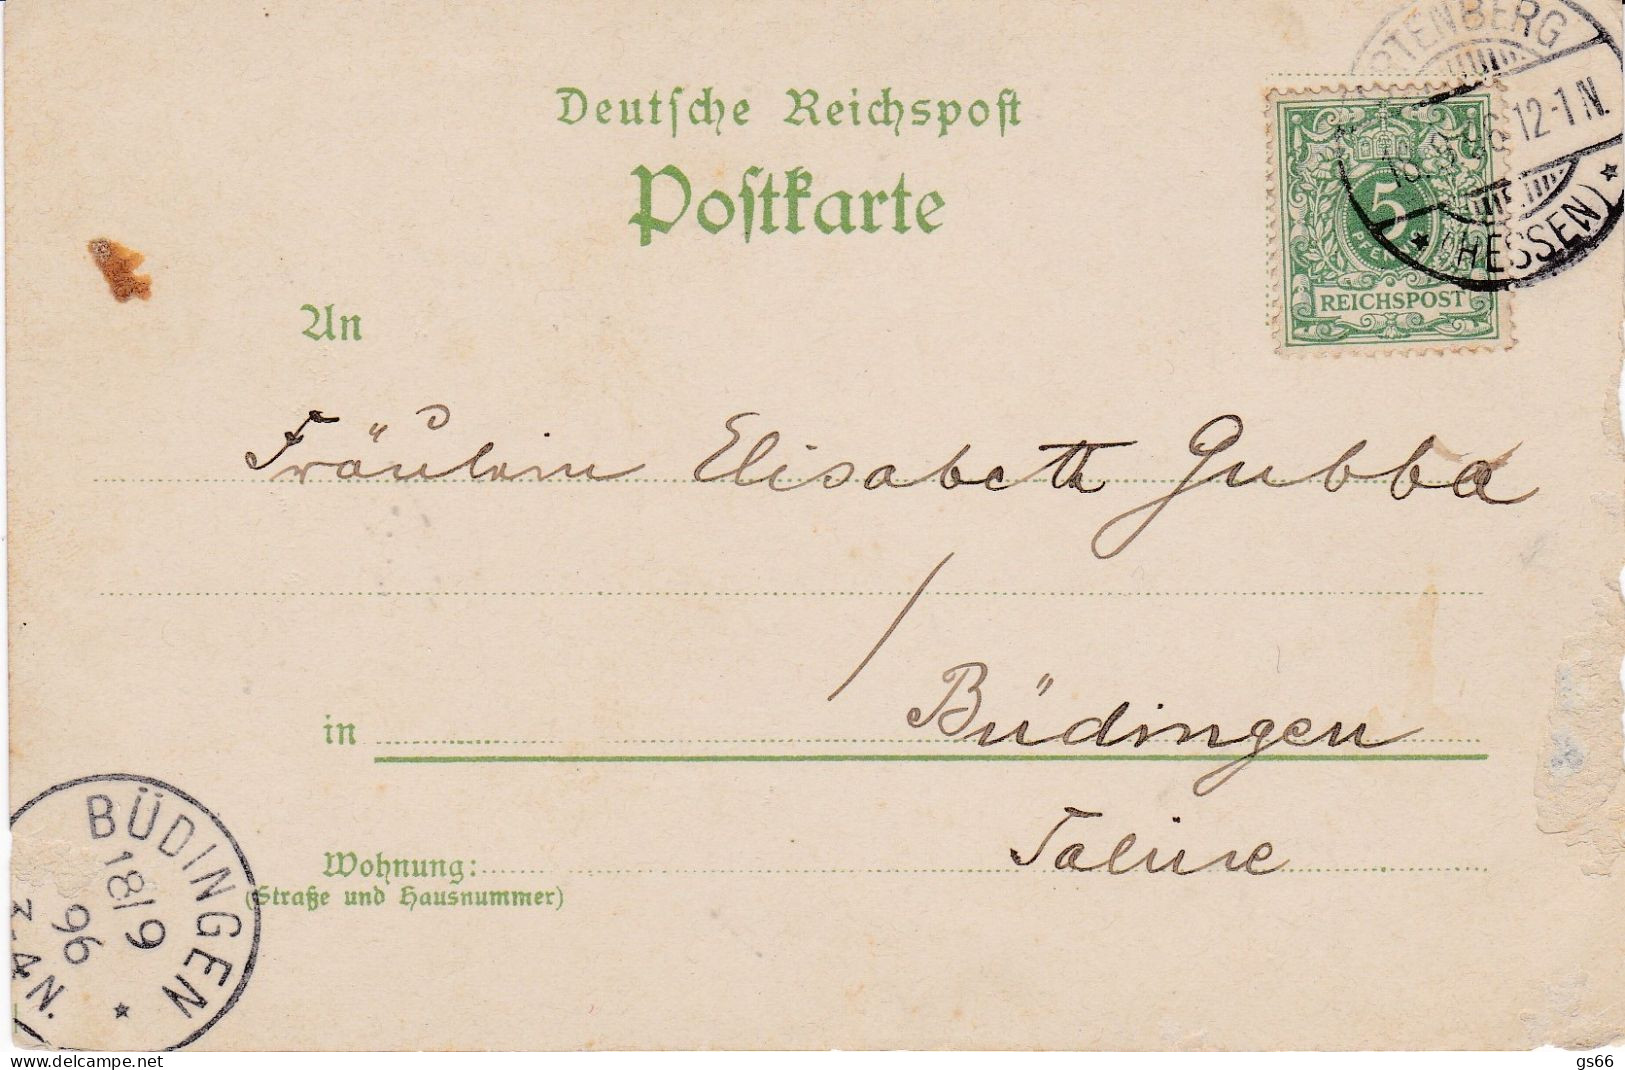 Deutsche Reichspost
Postkarte
RTENBERG
18.9.96 12-1 N.
* (HESSEN) *
5
REICHSPOST
An
Fräulein Elisabeth Gubba
in Büdingen
Wohnung: Saline
(Straße und Hausnummer)
BÜDINGEN
18/9
96
3-4N.
*
www.delcampe.net
gs66